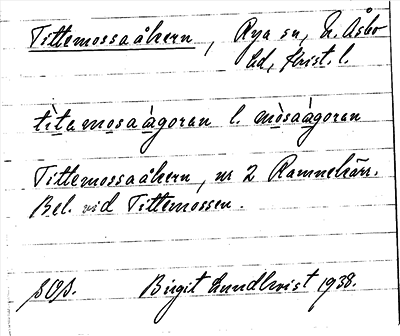 Tittemossaåkern, Rya sn, N. Åsbo
hd, Krist. l.
tìtamosaàgoran l. mòsaàgoran
Tittemossaåkern, nr 2 Ramnekärr.
Bel. vid Tittemossen.
SOS. Birgit Lundkvist 1938.